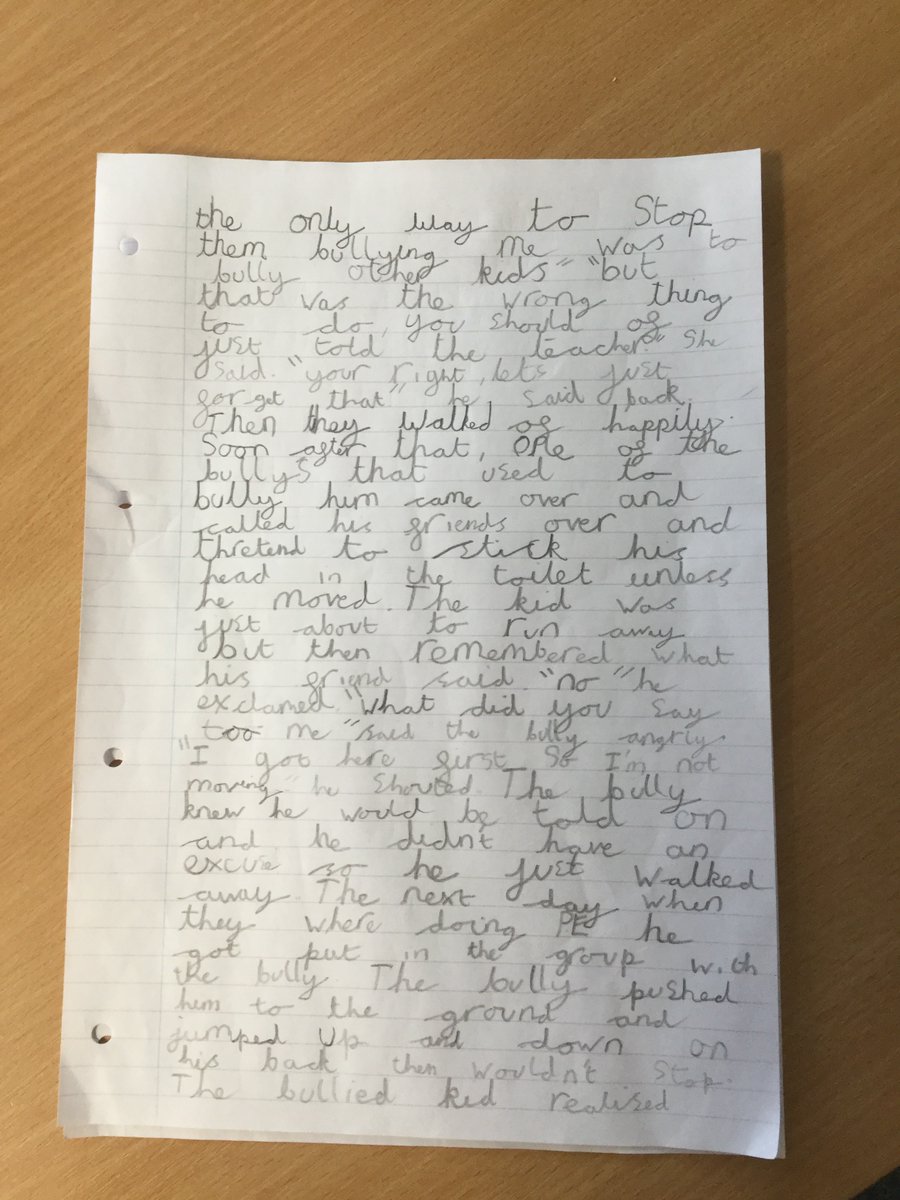 the only way to Stop
them bullying me was to
bully other kids" "but
that was the wrong thing
to do, you should of
just told the teacher." She
Said. "your right, lets just
forget that" he said back.
Then they walked of happily.
Soon after that, one of the
bullys that used to
bully him came over and
called his friends over and
thretend to stick his
head in the toilet unless
he moved. The kid was
just about to run away
but then remembered what
his friend said. "no" he
exclamed. "What did you say
too me" said the bully angrly.
"I got here first So I'm not
moving" he shouted. The bully
knew he would be told on
and he didn't have an
excuse so he just walked
away. The next day when
they where doing PE he
got put in the group with
the bully. The bully pushed
him to the ground and
jumped up and down on
his back then wouldn't stop.
The bullied kid realised